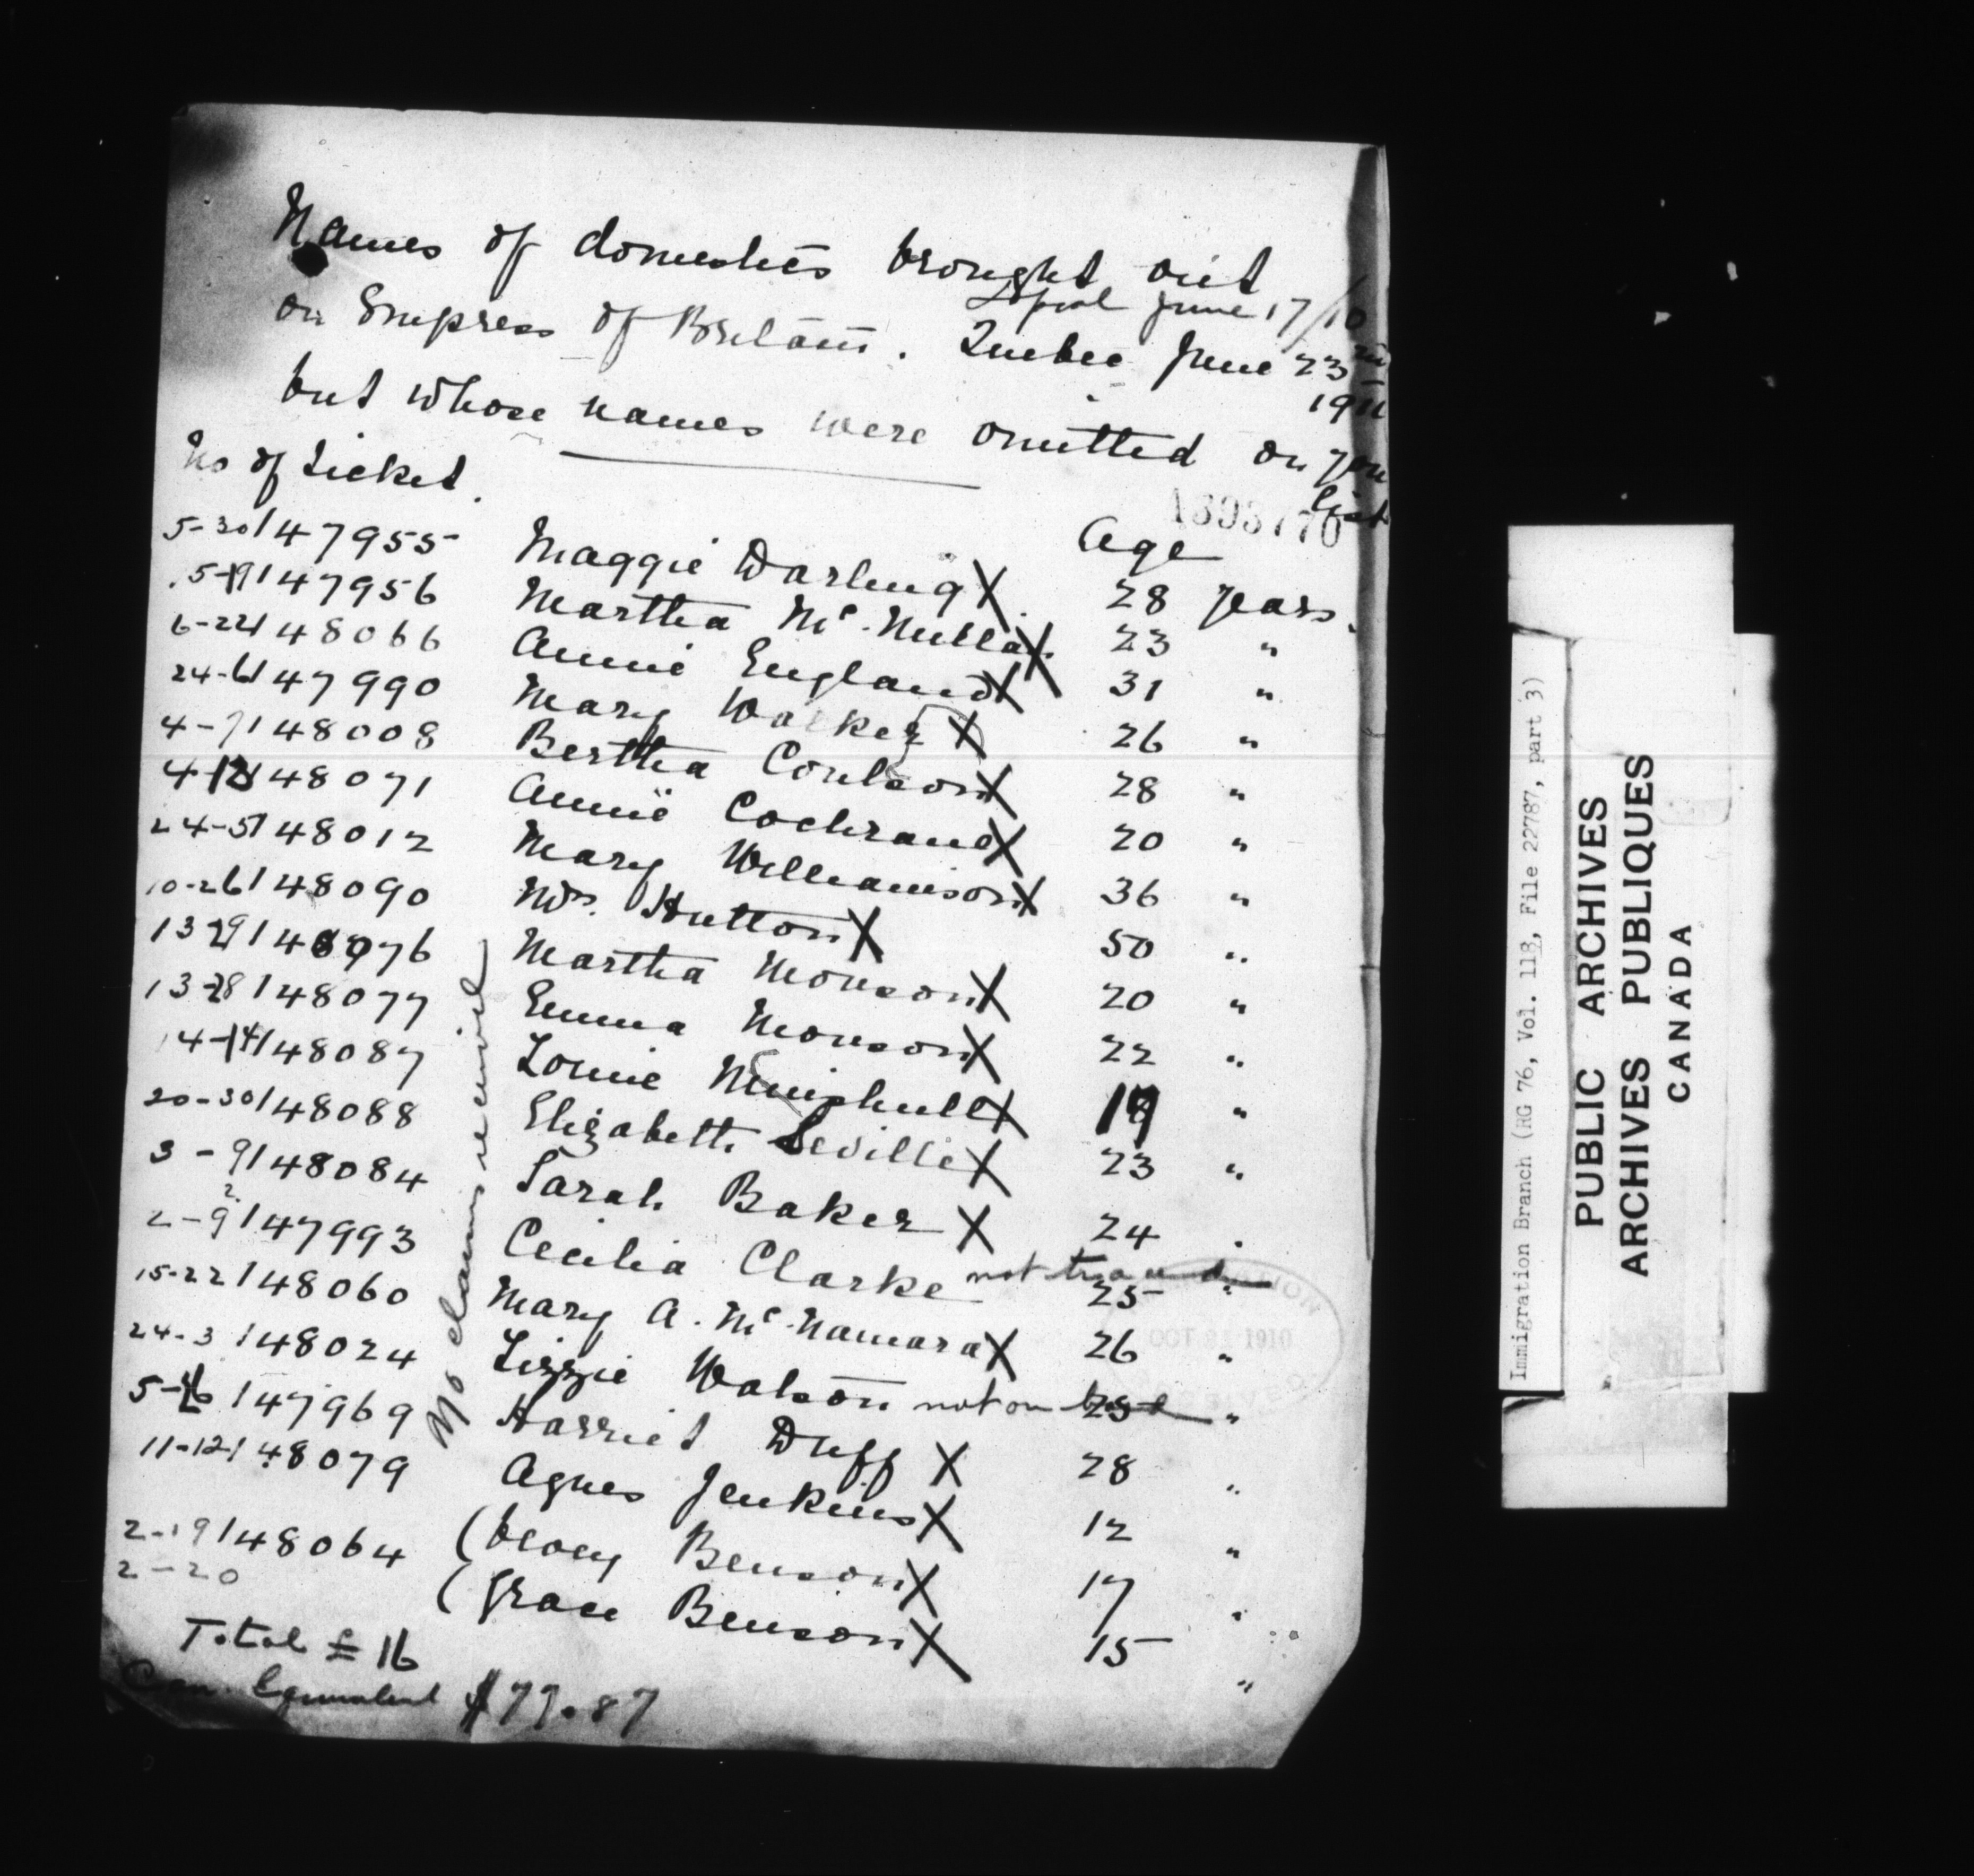 Names of domestics brought out
L'pool June 17/10
on Empress of Britain. Quebec June 23rd
1910
but whose names were omitted on your
list
No of Ticket.
1393770
Age
5-30/147955 Maggie Darling X 28 years.
5-19/147956 Martha Mc.Nulla X 23 "
6-22/148066 Annie England X 31 "
24-6/147990 Mary Walker X 26 "
4-7/148008 Bertha Coulson X 28 "
4-12/148071 Annie Cochrane X 20 "
24-5/148012 Mary Williamson X 36 "
10-26/148090 Mrs. Hutton X 50 "
13-29/148076 Martha Monson X 20 "
13-28/148077 Emma Monson X 22 "
14-14/148087 Louie Minshull X 19 "
20-30/148088 Elizabeth Seville X 23 "
3-9/148084 Sarah Baker X 24 "
2-9/147993 Cecilia Clarke not found 25 "
15-22/148060 Mary A. Mc.Namara X 26 "
24-3/148024 Lizzie Watson not on board 25 "
5-16/147969 Harriet Duff X 28 "
11-12/148079 Agnes Jenkins X 12 "
2-19/148064 ( Benson X 17 "
2-20 (Grace Benson X 15 "
No claims received
Total £16
Can. Equivalent $77.87
OCT 1910
Immigration Branch (RG 76, Vol. 118, File 22787, part 3)
PUBLIC ARCHIVES
ARCHIVES PUBLIQUES
CANADA